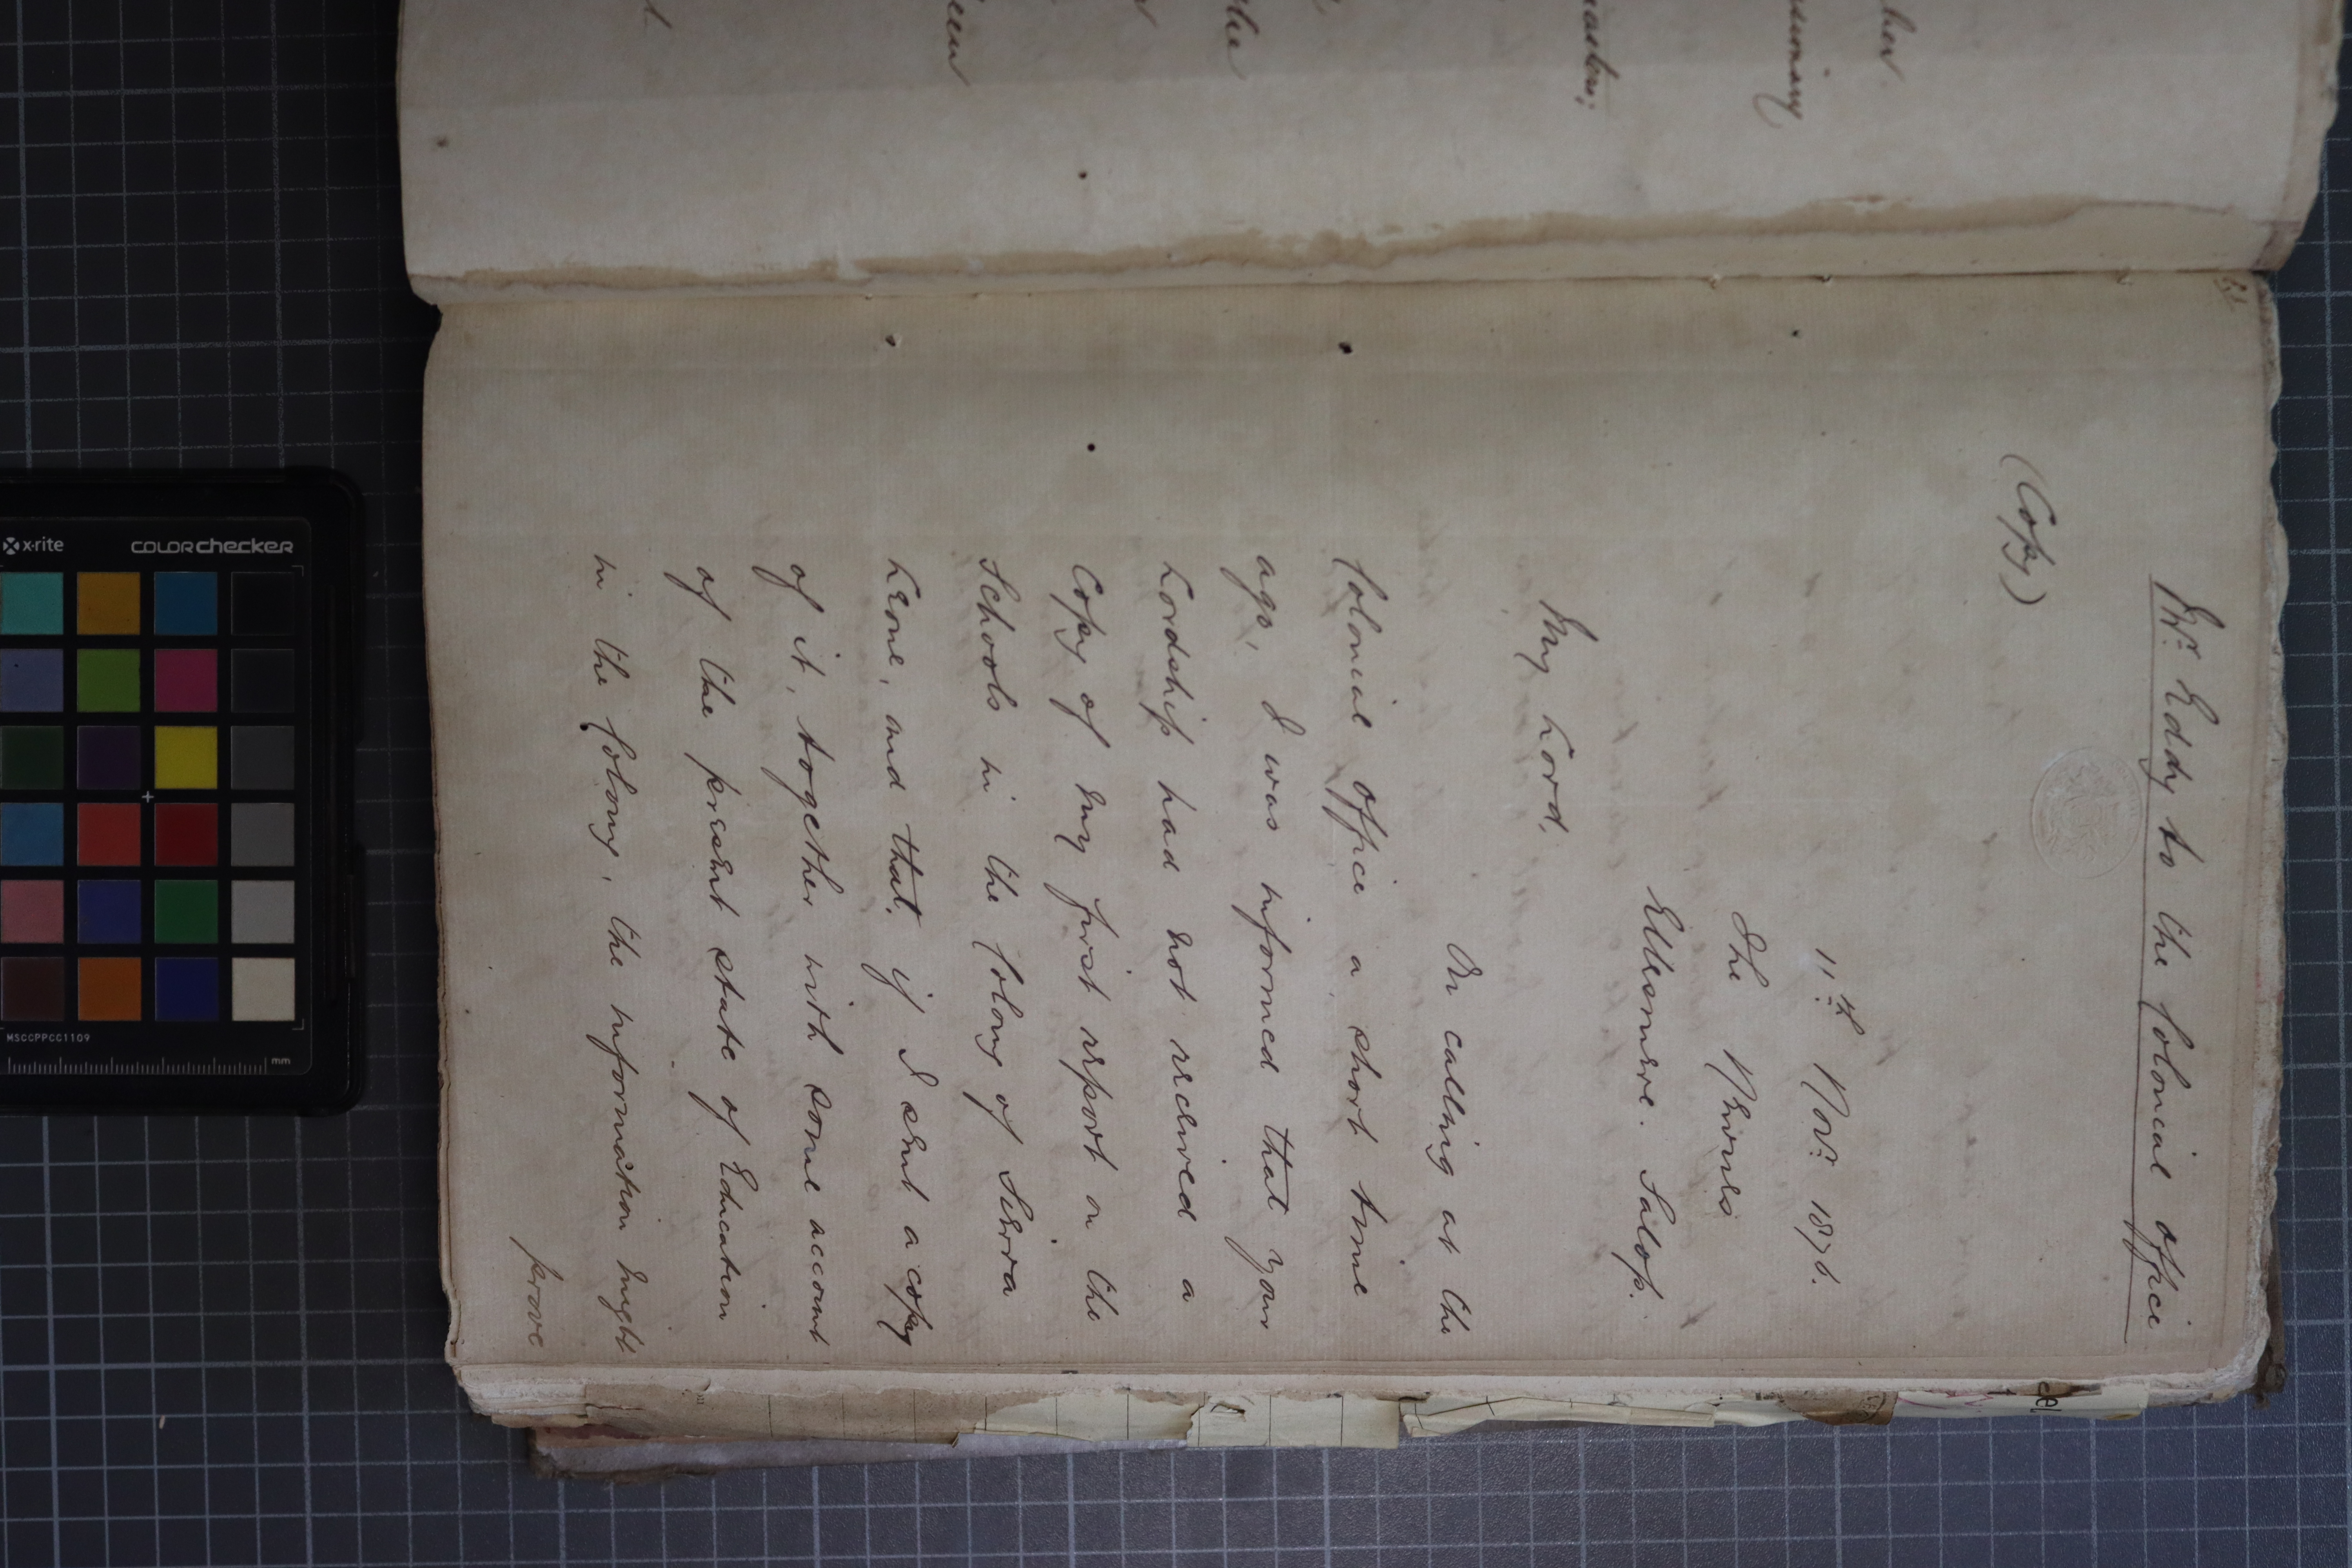 her
ssionary
masters;
the
een
21.
Mr. Eddy to the Colonial Office
(Copy)
11th Novr. 1876.
The
Ellesmere. Salop.
My Lord,
On calling at the
Colonial Office a short time
ago, I was informed that your
Lordship had not received a
Copy of my first report on the
Schools in the Colony of Sierra
Leone, and that, if I sent a copy
of it, together with some account
of the present state of Education
in the Colony, the information might
prove
x-rite
colorchecker
MSCCPPCC1109
mm